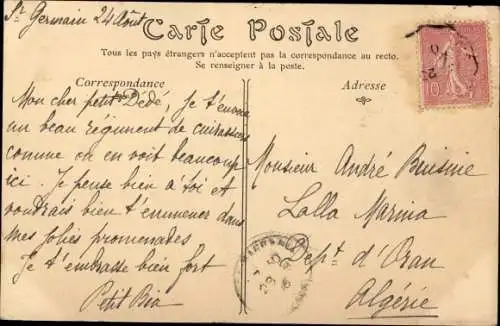 St Germain 24 Août
Carte Postale
Tous les pays étrangers n'acceptent pas la correspondance au recto.
Se renseigner à la poste.
Correspondance
Adresse
Mon cher petit Dédé, je t'envoie
un beau régiment de cuirassiers
comme on en voit beaucoup
ici. Je pense bien à toi et
voudrais bien t'emmener dans
mes jolies promenades
Je t'embrasse bien fort
Petit Bia
Monsieur André
Lalla Marnia
Dept d'Oran
Algérie
10